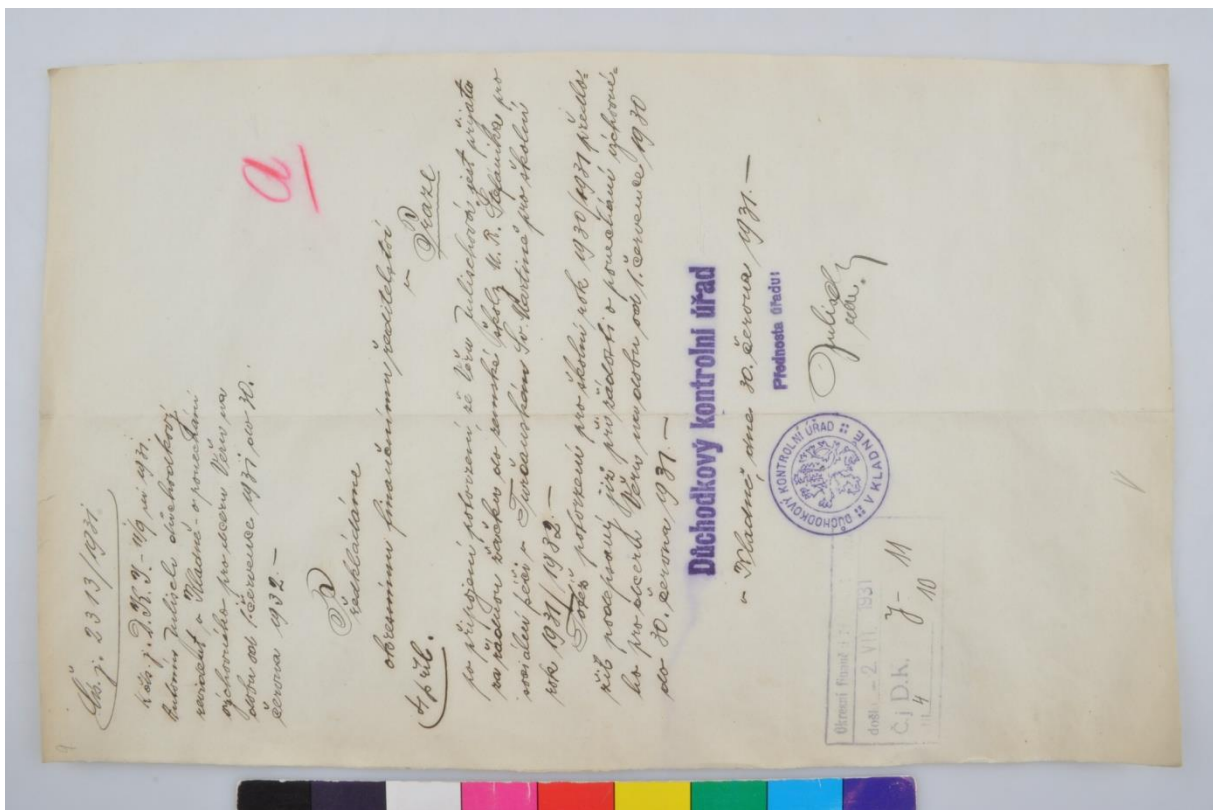 Čís. j. 2313/1931
Antonín Julisch důchodkový
v Kladně - o ponechání
výchovného pro dceru Věru na
dobu od 1. července 1931 do 30.
června 1932.—
a
Předkládáme
okresnímu finančnímu ředitelství
v
Praze
po připojení potvrzení, že Věra Julischová jest přijata
za řádnou žačku do zemské školy M. R. Štefánika pro
sociální péči v Turčanském Sv. Martině pro školní
rok 1931/1932.—
Totéž potvrzení pro školní rok 1930/1931 předlo-
žil podepsaný již při žádosti o ponechání výchovné-
ho pro dceru Věru na dobu od 1. července 1930
do 30. června 1931.—
Důchodkový kontrolní úřad
v Kladně dne 30. června 1931.—
Přednosta úřadu:
Julisch
DŮCHODKOVÝ KONTROLNÍ ÚŘAD
V KLADNĚ
Okresní finanč
došlo - 2. VII. 1931
Č.j. D.K. J - 11
4 10
9